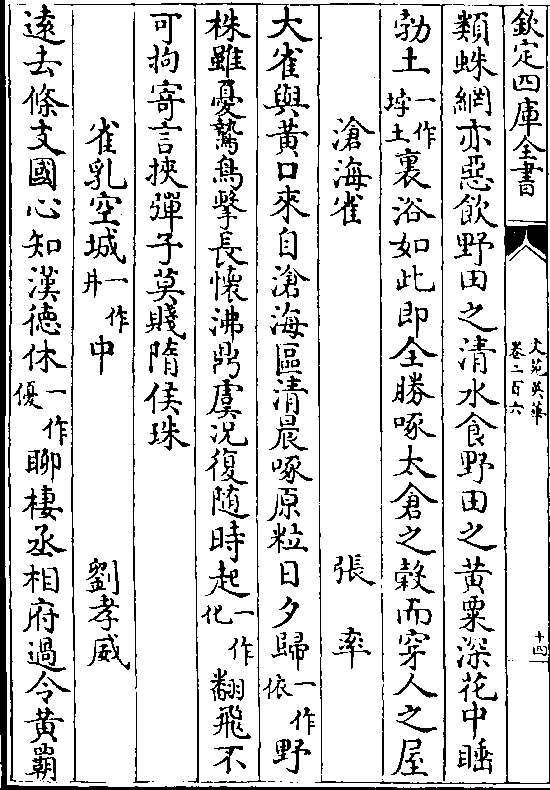 欽定四庫全書
文苑英華
卷二百六
十四
類蛛網亦惡飲野田之清水食野田之黃粟深花中睡
勃土一作垺土裏浴如此即全勝啄太倉之穀而穿人之屋
滄海雀 張率
大雀與黃口來自滄海區清晨啄原粒日夕歸一作依野
株雖憂鷙鳥擊長懷沸鼎虞況復隨時起一作化翻飛不
可拘寄言挾彈子莫賤隋侯珠
雀乳空城一作井中 劉孝威
遠去條支國心知漢德休一作優聊棲丞相府過令黃霸